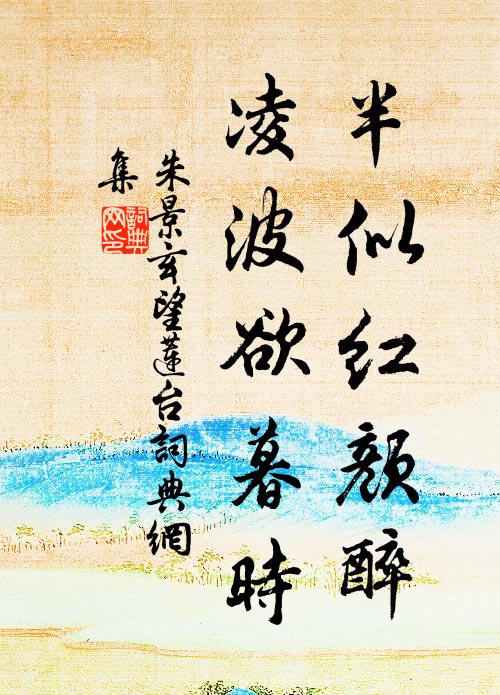 半似红顏醉
凌波欲暮時
朱景玄望蓮台詞典網
集
詞典
网印